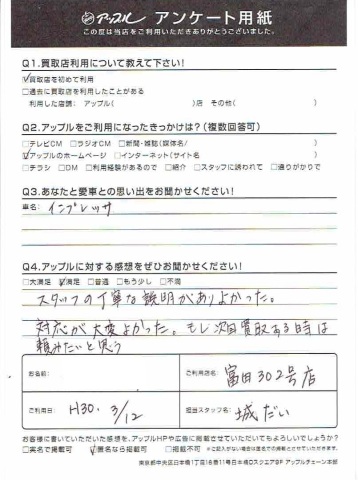 アップル アンケート用紙
この度は当店をご利用いただきありがとうございました。
Q1.買取店利用について教えて下さい!
☑買取店を初めて利用
□過去に買取店を利用したことがある
利用した店頭: アップル( )店 その他( )
Q2.アップルをご利用になったきっかけは?(複数回答可)
□テレビCM □ラジオCM □新聞・雑誌(媒体名/ )
☑アップルのホームページ □インターネット(サイト名 )
□チラシ □DM □利用経験があるので □紹介 □スタッフに誘われて □通りがかりで
Q3.あなたと愛車との思い出をお聞かせください!
車名: インプレッサ
Q4.アップルに対する感想をぜひお聞かせください!
□大満足 ☑満足 □普通 □もう少し □不満
スタッフの丁寧な説明がありよかった。
対応が大変よかった。もし次回買取ある時は
頼みたいと思う
お名前: ご利用店名: 富田302号店
ご利用日 H30. 3/12 担当スタッフ名: 城 だい
お客様に書いていただいた感想を、アップルHPや広告に掲載させていただいてもよろしいでしょうか?
□実名で掲載可 ☑匿名なら掲載可 □掲載不可 ※ご記入がない場合は匿名での掲載とさせていただきます。
東京都中央区日本橋1丁目16番11号日本橋Dスクエア5F アップルチェーン本部